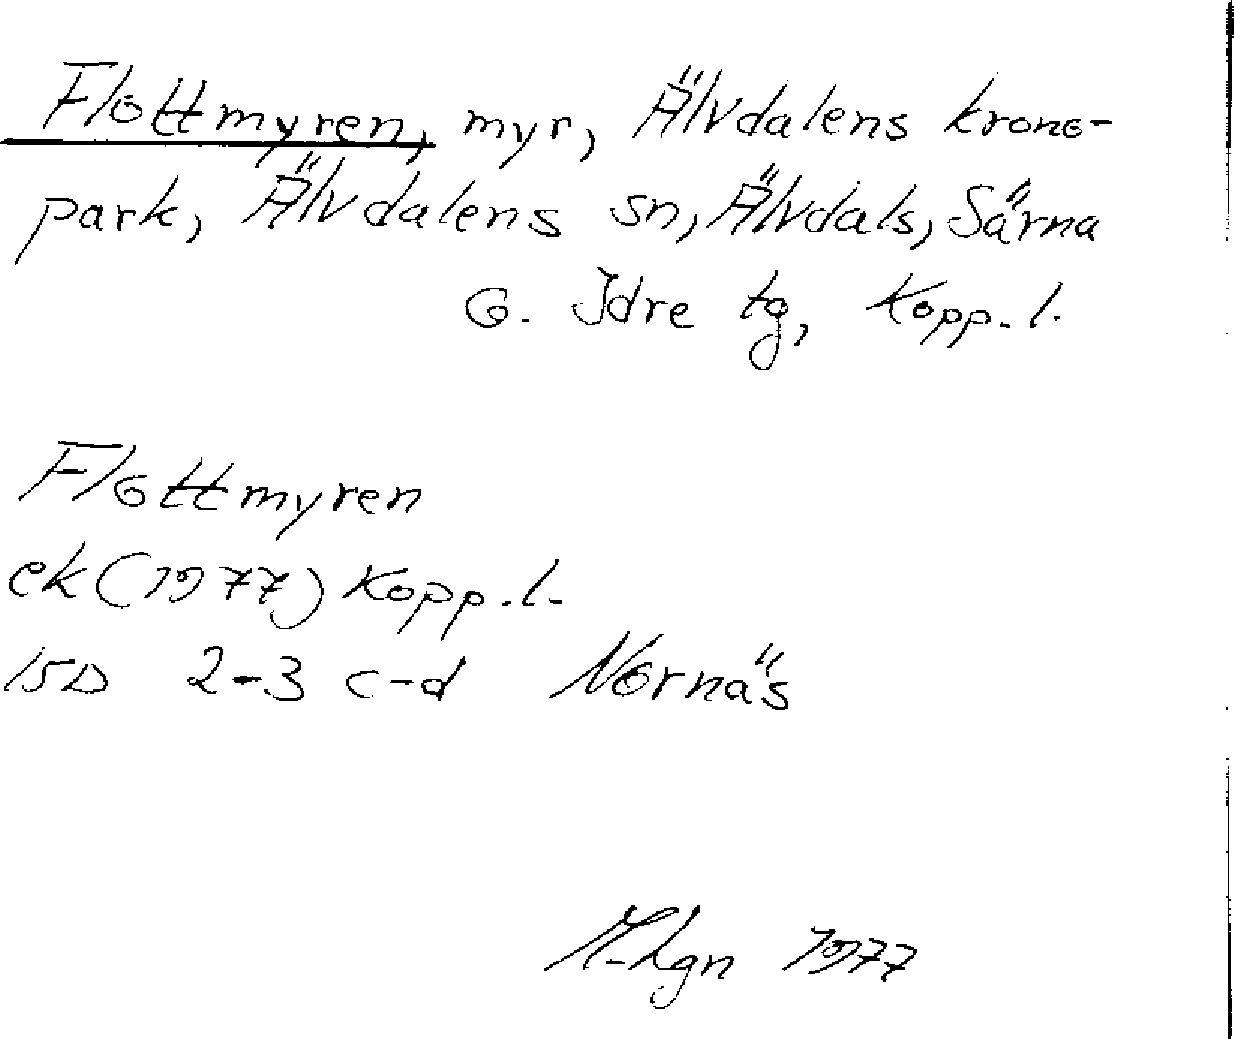 Flottmyren, myr, Älvdalens krono-
park, Älvdalens sn, Älvdals, Särna
o. Idre tg, Kopp. l.
Flottmyren
ek (1977) Kopp. l.
15D 2-3 c-d Nornäs
1977